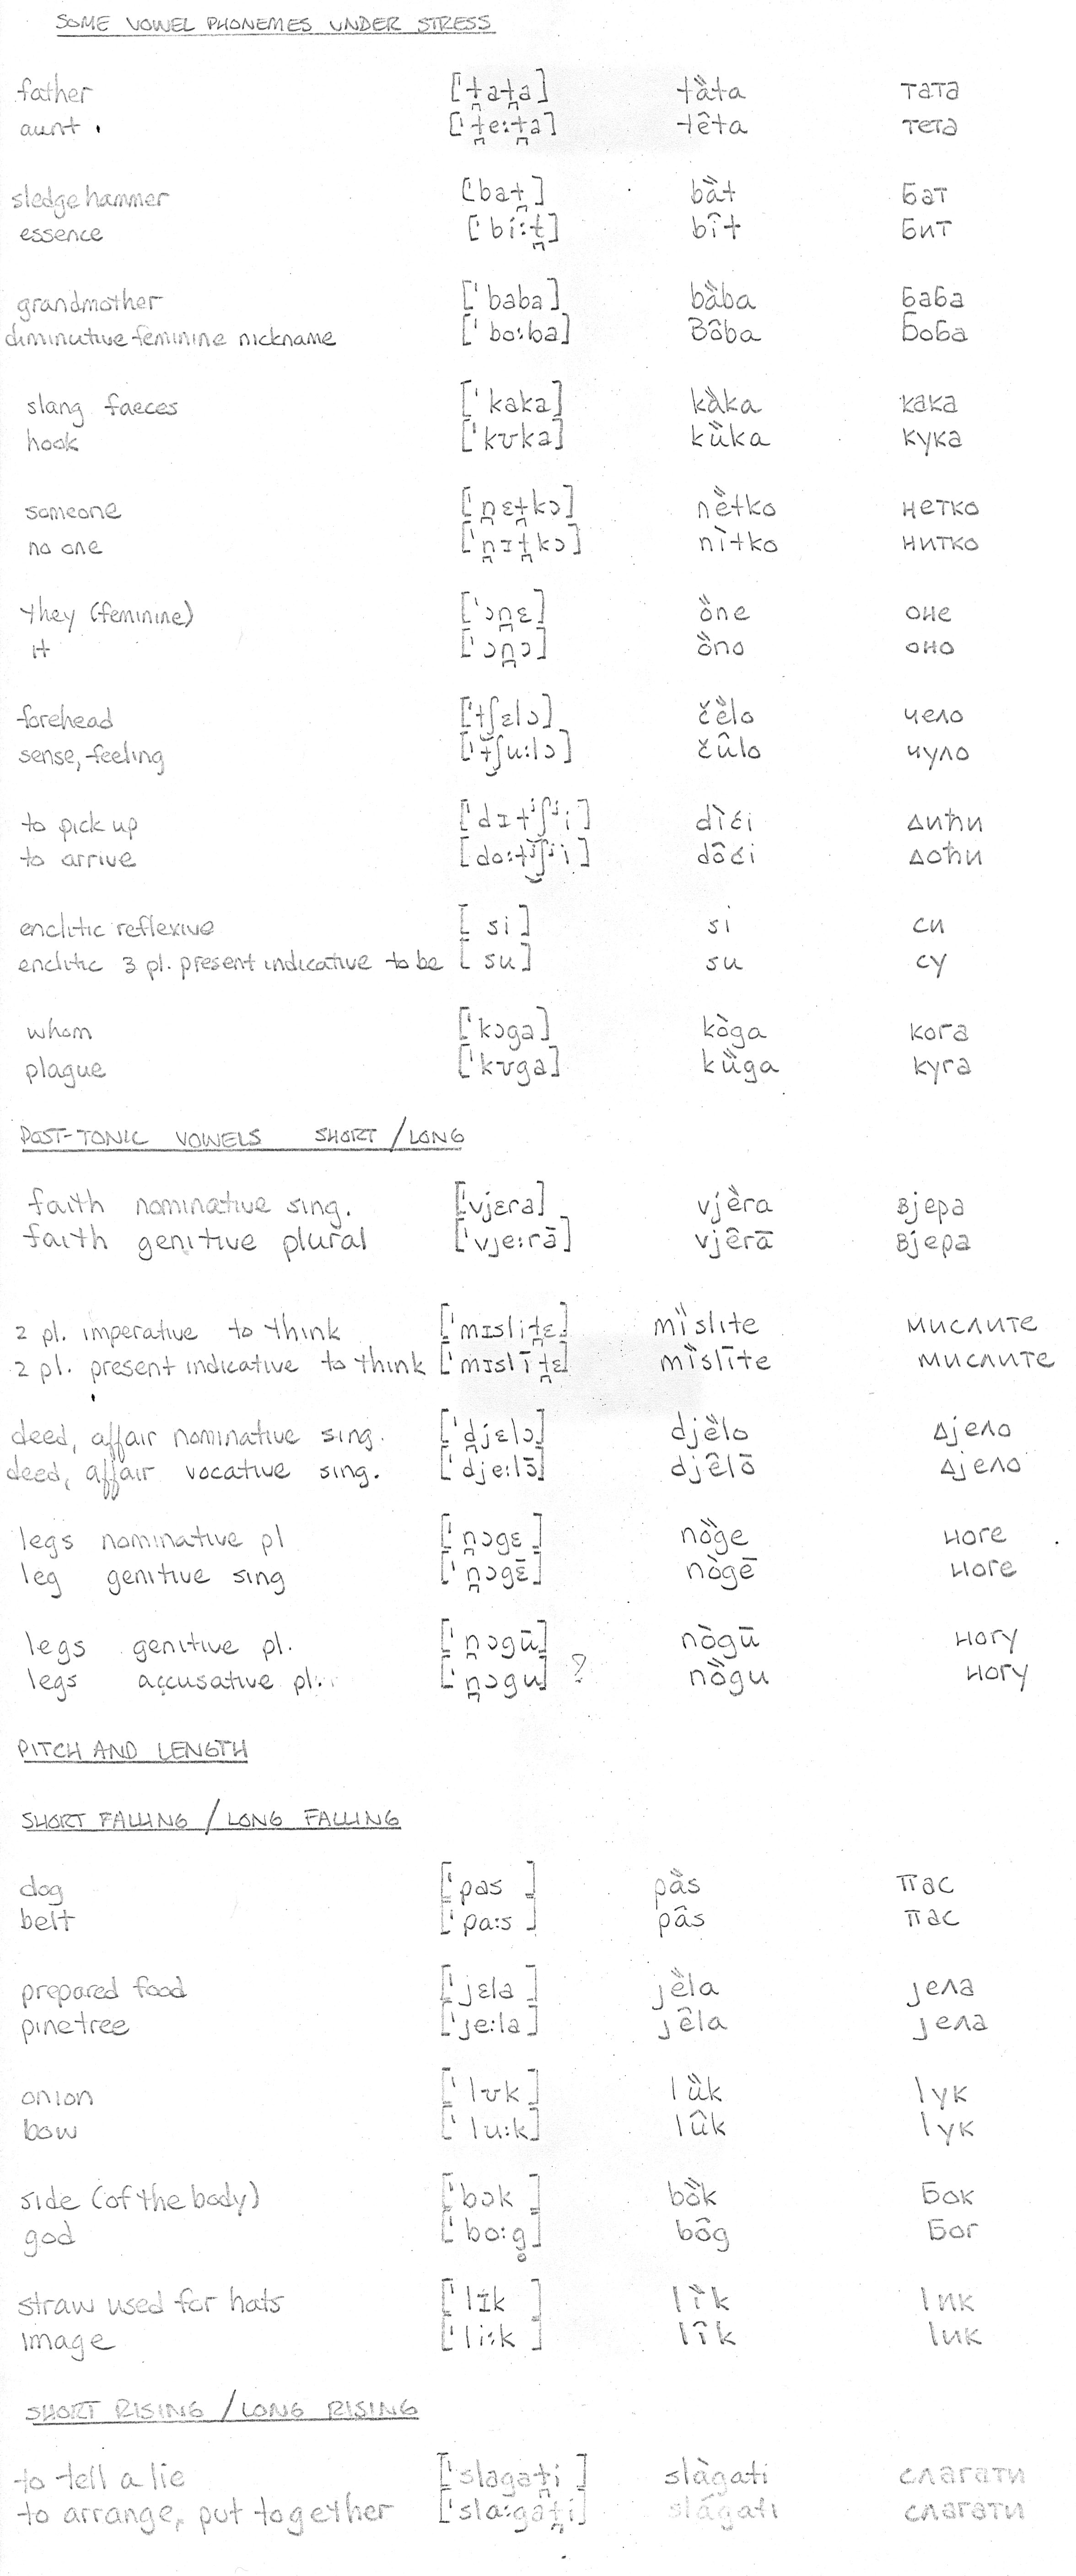 SOME VOWEL PHONEMES UNDER STRESS
father ['t̪at̪a] tȁta тата
aunt ['t̪e:t̪a] têta тета
sledge hammer ['bat̪] bȁt бат
essence ['bi:t̪] bît бит
grandmother ['baba] bȁba баба
diminutive feminine nickname ['bo:ba] Bôba Боба
slang faeces ['kaka] kȁka кака
hook ['kʊka] kȕka кука
someone ['n̪ɛt̪kɔ] nȅtko нетко
no one ['n̪ɪt̪kɔ] nìtko нитко
they (feminine) ['ɔn̪ɛ] ȍne оне
it ['ɔn̪ɔ] ȍno оно
forehead ['tʃɛlɔ] čèlo чело
sense, feeling ['t͜ʃu:lɔ] čûlo чуло
to pick up ['dɪtʲʃʲi] dȉći дићи
to arrive [do:t͜ʲʃʲi] dôći доћи
enclitic reflexive [si] si си
enclitic 3 pl. present indicative to be [su] su су
whom ['kɔga] kòga кога
plague ['kʊga] kȕga куга
POST-TONIC VOWELS SHORT / LONG
faith nominative sing. ['vjɛra] vjȅra вјера
faith genitive plural ['vje:rā] vjêrā вјера
2 pl. imperative to think ['mɪslit̪ɛ] mȉslite мислите
2 pl. present indicative to think ['mɪslīt̪ɛ] mȉslīte мислите
deed, affair nominative sing. ['d̪jɛlɔ] djȅlo дјело
deed, affair vocative sing. ['dje:lɔ̄] djêlō дјело
legs nominative pl ['n̪ɔgɛ] nȍge ноге
leg genitive sing ['n̪ɔgɛ̄] nògē ноге
legs genitive pl. ['n̪ɔgū] nògū ногу
legs accusative pl. ['n̪ɔgu] ? nȍgu ногу
PITCH AND LENGTH
SHORT FALLING / LONG FALLING
dog ['pas] pȁs пас
belt ['pa:s] pâs пас
prepared food ['jɛla] jȅla јела
pinetree ['je:la] jêla јела
onion ['lʊk] lȕk lук
bow ['lu:k] lûk lук
side (of the body) ['bɔk] bȍk Бок
god ['bo:g̥] bôg Бог
straw used for hats ['lɪk] lȉk lик
image ['li:k] lîk lик
SHORT RISING / LONG RISING
to tell a lie ['slagat̪i] slàgati слагати
to arrange, put together ['sla:gat̪i] slágati слагати